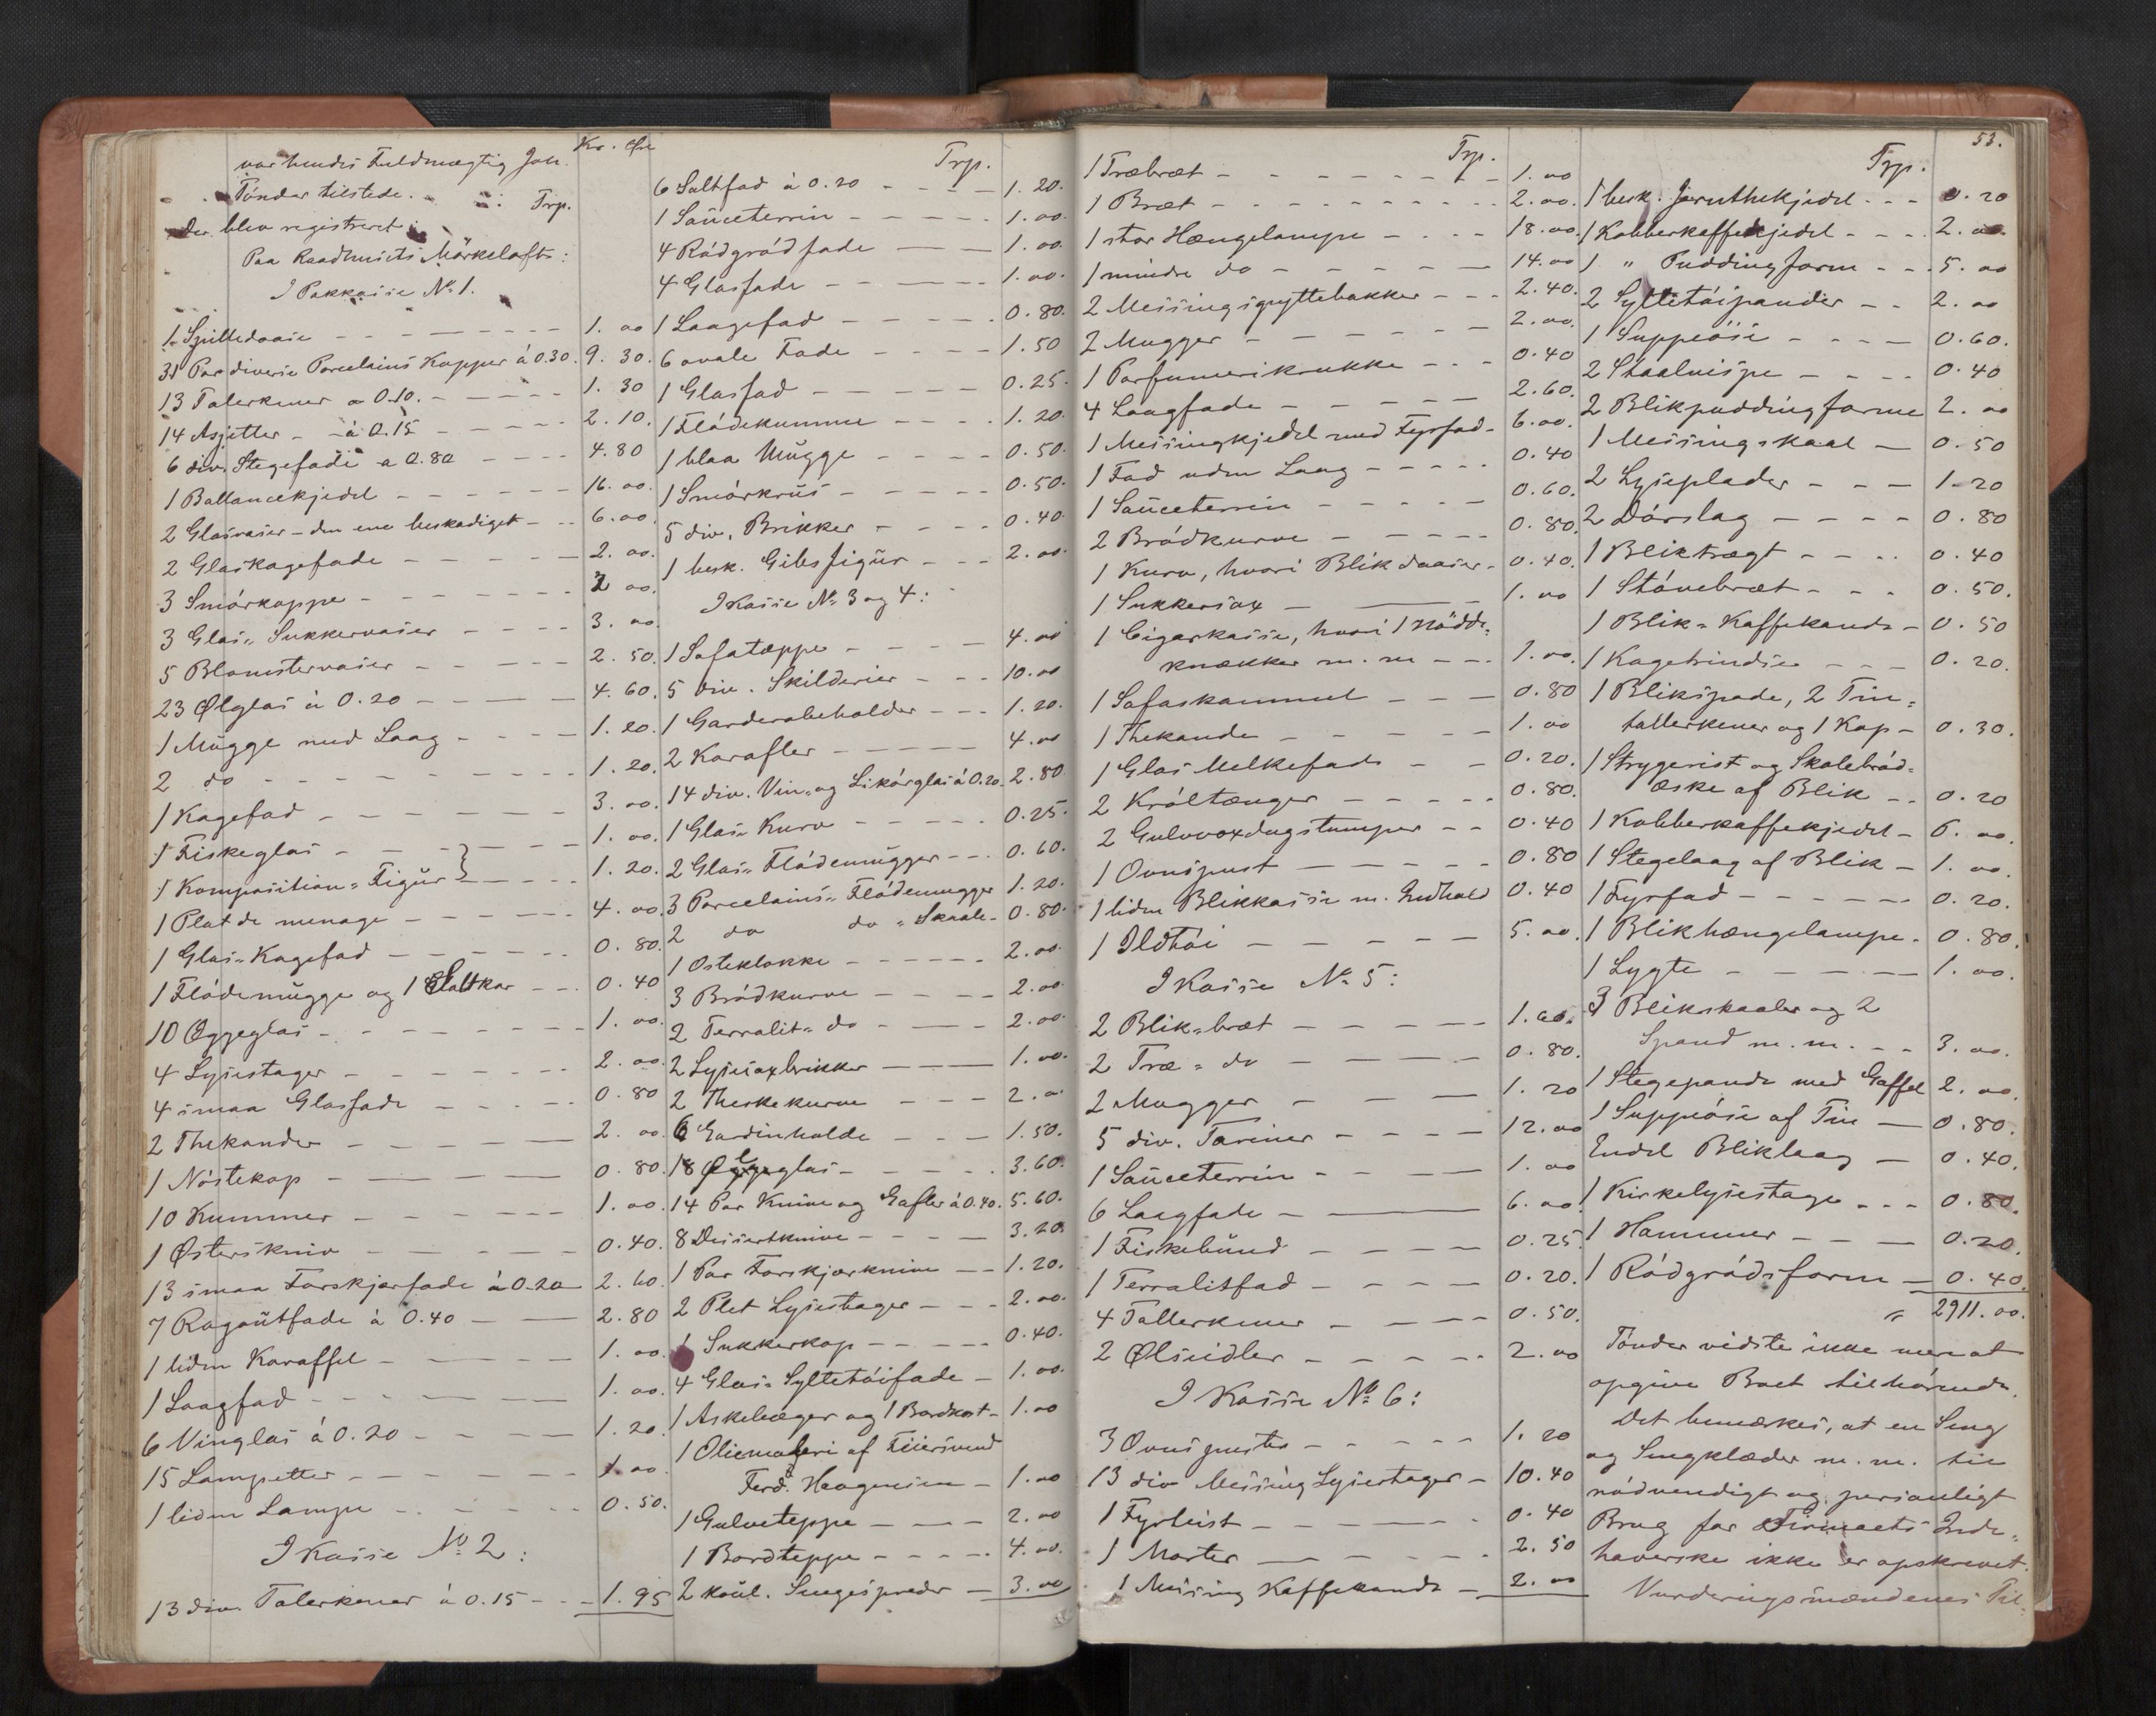 var hendes Fuldmægtig Joh.
Tønder tilstede.
Trp.
Der blev registreret:
Paa Raadhusets Mørkeloft:
I Pakkasse No 1.
Kr. Øre
1 Spilledaase - - - 1. 00
31 Par diverse Porcelains Kopper à 0.30. 9. 30.
13 Talerkener a 0.10. - - - 1. 30
14 Asjetter - à 0.15 - - - 2. 10.
6 div. Stegefade a 0.80 - - - 4. 80
1 Ballancekjedel - - - 16. 00.
2 Glasvaser - den ene beskadiget - - 6. 00
2 Glaskagefade - - - 2. 00.
3 Smörkoppe - - - 2 00.
3 Glas= Sukkervaser - - - 3. 00.
5 Blomstervaser - - - 2. 50.
23 Ølglas à 0.20 - - - 4. 60.
1 Mugge med Laag - - - 1. 20.
2 do - - - 1. 20.
1 Kagefad - - - 3. 00.
1 Fiskeglas - - - 1. 00.
1 Komposition= Figur - - - 1. 20.
1 Plat de menage - - - 4. 00.
1 Glas= Kagefad - - - 0. 80.
1 Flödemugge og 1 Saltkar - - 0. 40
10 Æggeglas - - - 1. 00.
4 Lysestager - - - 2. 00.
4 smaa Glasfade - - - 0. 80
2 Thekander - - - 2. 00.
1 Nöstekop - - - 0. 80.
10 Kummer - - - 1. 00.
1 Østerskniv - - - 0. 40.
13 smaa Forskjærfade à 0.20 2. 60.
7 Ragoutfade à 0.40 - - 2. 80
1 liden Karaffel - - - 1. 00.
1 Laagfad - - - 1. 00.
6 Vinglas à 0.20 - - - 1. 20.
15 Lampetter - - - 1. 00.
1 liden Lampe - - - 0. 50.
I Kasse No 2:
13 div. Talerkener à 0.15 - - - 1. 95
Trp.
6 Saltfad à 0.20 - - - 1. 20.
1 Sauceterrin - - - 1. 00.
4 Rödgrödfade - - 1. 00.
4 Glasfade - - - 1. 00.
1 Laagefad - - - 0. 80.
6 ovale Fade - - - 1. 50
1 Glasfad - - - 0. 25.
1 Flödekumme - - - 1. 20.
1 blaa Mugge - - - 0. 50.
1 Smörkrus - - - 0. 50.
5 div. Brikker - - - 0. 40.
1 besk. Gibsfigur - - - 2. 00.
I Kasse No 3 og 4:
1 Sofatæppe - - - 4. 00
5 div. Skilderier - - - 10. 00
1 Garderobeholder - - - 1. 20.
2 Karafler - - - 4. 00
14 div. Vin= og Likörglas à 0.20. 2. 80.
1 Glas= Kurv - - - 0. 25.
2 Glas= Flödemugger - - - 0. 60.
3 Porcelains= Flödemugger 1. 20.
2 do do = Skaale - 0. 80.
1 Osteklokke - - - 2. 00.
3 Brödkurve - - - 2. 00.
2 Terralit= do - - - 2. 00.
2 Lysesaxbrikker - - - 1. 00.
2 Theskekurve - - - 2. 00
6 Gardinholde - - - 1. 50.
18 Ølglas - - - 3. 60.
14 Par Knive og Gafler à 0.40. 5. 60.
8 Dessertknive - - - 3. 20.
1 Par Forskjærknive - - 1. 20.
2 Plet Lysestager - - - 2. 00.
1 Sukkerkop - - - 0. 40.
4 Glas= Syltetöifade - 1. 00.
1 Askebæger og 1 Bordkost - 1. 00
1 Oliemaleri af Feiersund
Ferd. Haagensen - 1. 00
1 Gulvteppe - - - 2. 00
1 Bordteppe - - - 4. 00.
2 koul. Sengespreder - 3. 00
Trp.
1 Træbræt - - - 1. 00
1 Bræt - - - 2. 00.
1 stor Hængelampe - - - 18. 00.
1 mindre do - - - 14. 00
2 Messingspyttebakker - - - 2. 40.
2 Mugger - - - 2. 00.
1 Parfumerikrukke - - - 0. 40
4 Laagfade - - - 2. 60.
1 Messingkjedel med Fyrfad - 6. 00.
1 Fad uden Laag - - - 0. 40
1 Sauceterrin - - - 0. 60.
2 Brödkurve - - - 0. 80.
1 Kurv, hvori Blikdaaser - 0. 40.
1 Sukkersax - - - 1. 00
1 Cigarkasse, hvori 1 Nödde=
knækker m. m - - - 1. 00.
1 Sofaskammel - - - 0. 80
1 Thekande - - - 1. 00
1 Glas Melkefad - - 0. 20.
2 Kröltænger - - - 0. 80.
2 Gulvvoxdugstumper - - 0. 40
1 Ovnspust - - - 0. 80
1 liden Blikkasse m. Indhold 0. 40
1 Ildtöi - - - 5. 00.
I Kasse No 5:
2 Blik=bræt - - - 1. 60.
2 Træ = do - - - 0. 80.
2 Mugger - - - 1. 20
5 div. Tariner - - - 12. 00
1 Sauceterrin - - - 1. 00
6 Laagfade - - - 6. 00
1 Fiskebund - - - 0. 25
1 Terralitfad - - - 0. 20.
4 Tallerkener - - - 0. 50.
2 Ølseidler - - - 2. 00
I Kasse No 6:
3 Ovnspuster - - - 1. 20
13 div Messing Lysestager - 10. 40
1 Fyrkist - - - 0. 40
1 Morter - - - 2. 50
1 Messing Kaffekande - 2. 00
53.
Trp.
1 besk. Jernthekjedel - - - 0. 20
1 Kobberkaffekjedel - - - 2. 00.
1 " Puddingform - - - 5. 00
2 Syltetöipander - - 2. 00
1 Suppeöse - - - 0. 60.
2 Staalvispe - - - 0. 40
2 Blikpuddingforme 2. 00
1 Messingskaal - 0. 50
2 Lyseplader - - - 1. 20
2 Dörslag - - - 0. 80
1 Bliktragt - - - 0. 40
1 Stövebræt - - - 0. 50.
1 Blik = Kaffekande - 0. 50
1 Kagetrindse - - - 0. 20.
1 Blikspade, 2 Tin=
tallerkener og 1 Kop - 0. 30.
1 Strygerist og Skolebröd=
æske af Blik - - 0. 20
1 Kobberkaffekjedel - 6. 00.
1 Stegelaag af Blik - 1. 00.
1 Fyrfad - - - 0. 20.
1 Blikhængelampe - 0. 80.
1 Lygte - - - 1. 00.
3 Blikskaaler og 2
Spand m. m. - - 3. 00.
1 Stegepande med Gaffel 2. 00.
1 Suppeöse af Tin - 0. 80.
Endel Bliklaag - 0. 40.
1 Kirkelysestage - - - 0. 80.
1 Hammer - - - 0. 20.
1 Rödgrödsform - 0. 40.
" 2911. 00.
Tönder vidste ikke mere at
opgive Boet tilhörende.
Det bemærkes, at en Seng
og Sengklæder m. m. til
nödvendigt og personligt
Brug for Firmaets Inde=
haverske ikke er opskrevet.
Vurderingsmændenes Til=